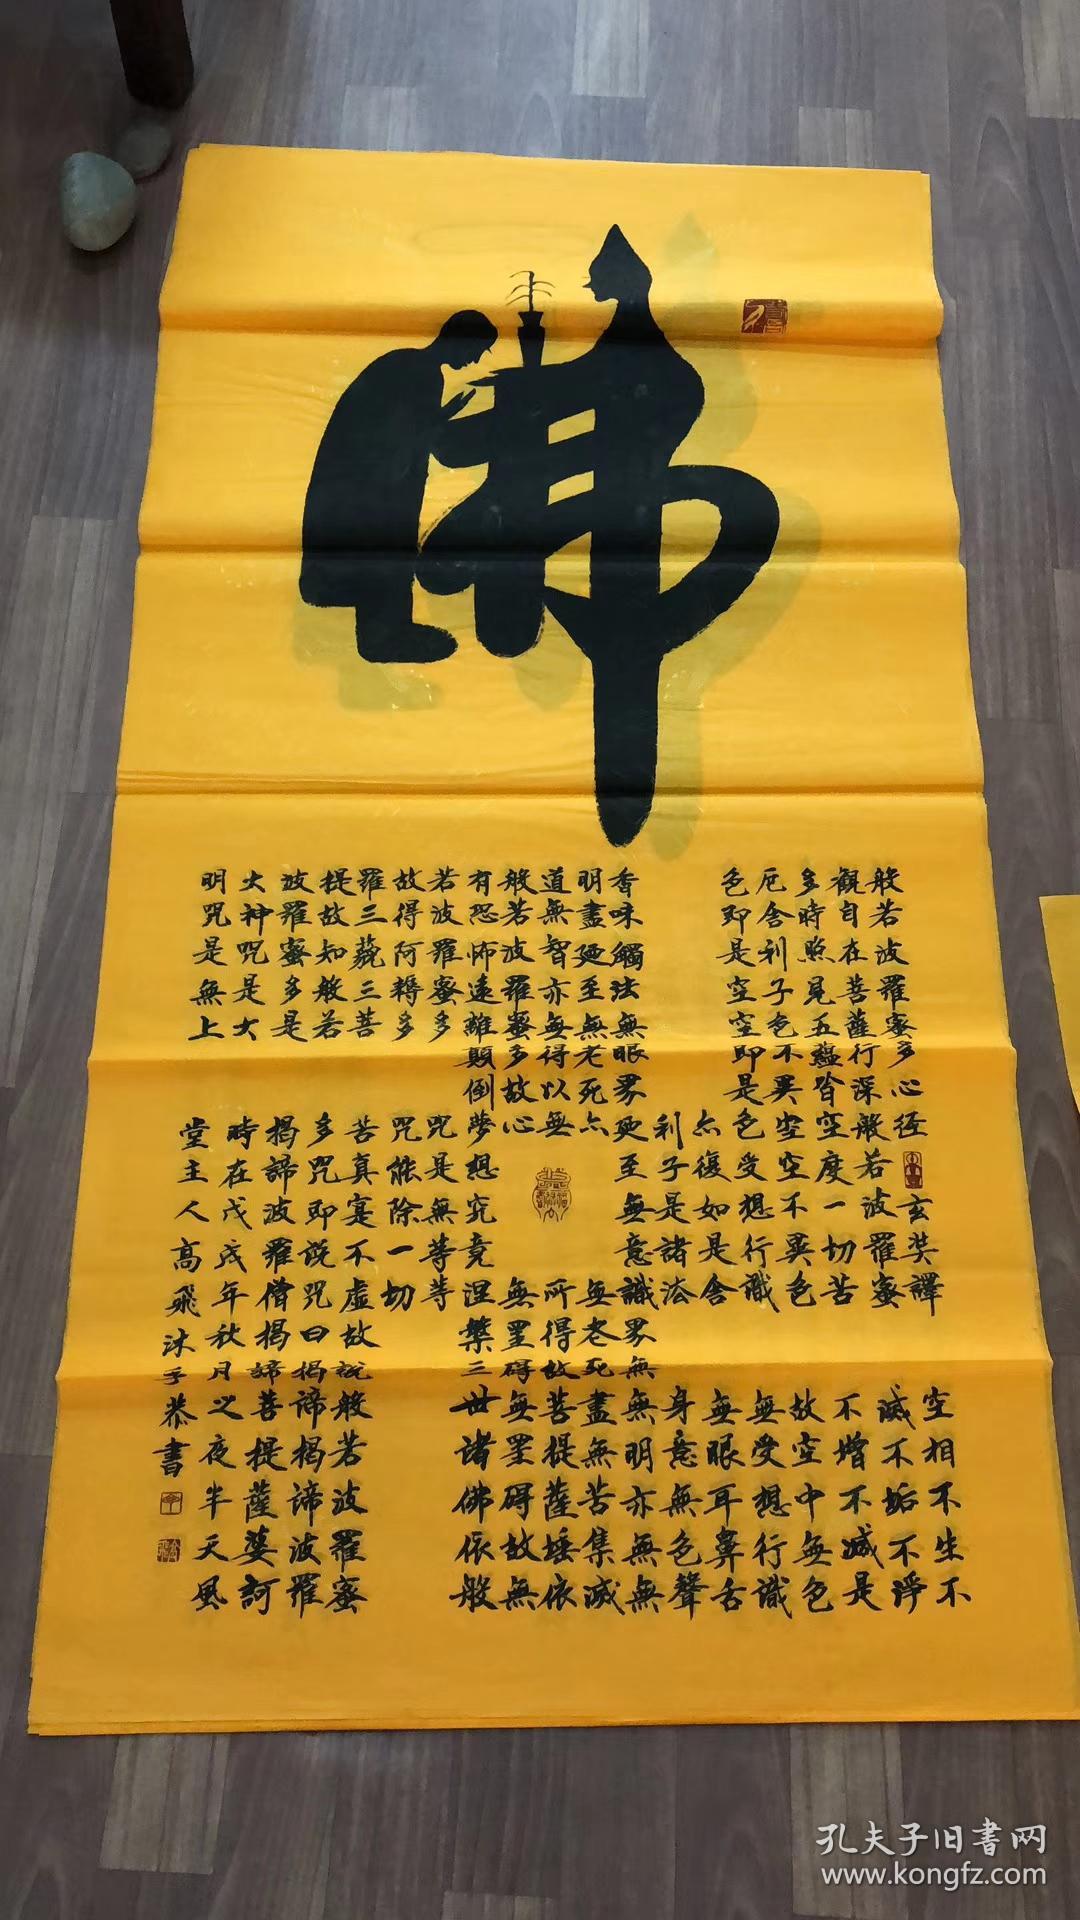 佛
般若波羅蜜多心經 玄奘譯
觀自在菩薩行深般若波羅蜜
多時照見五蘊皆空度一切苦
厄舍利子色不異空空不異色
色即是空空即是色受想行識
亦復如是舍
利子是諸法
空相不生不
滅不垢不淨
不增不減是
故空中無色
無受想行識
無眼耳鼻舌
身意無色聲
香味觸法無眼界
廼至無意識界無
無明亦無無
明盡廼至無老死亦
無老死盡無苦集滅
道無智亦無得以無
所得故菩提薩埵依
般若波羅蜜多故心
無罣碍無罣碍故無
有恐怖遠離顛倒夢想究竟涅槃三世諸佛依般
若波羅蜜多
故得阿耨多
羅三藐三菩
提故知般若
波羅蜜多是
大神咒是大
明咒是無上
咒是無等等
咒能除一切
苦真寔不虛故說般若波羅蜜
多咒即说咒曰揭諦揭諦波羅
揭諦波羅僧揭諦菩提薩婆訶
時在戊戌年秋月之夜半天風
堂主人高飛沐手恭書
孔夫子旧书网
www.kongfz.com